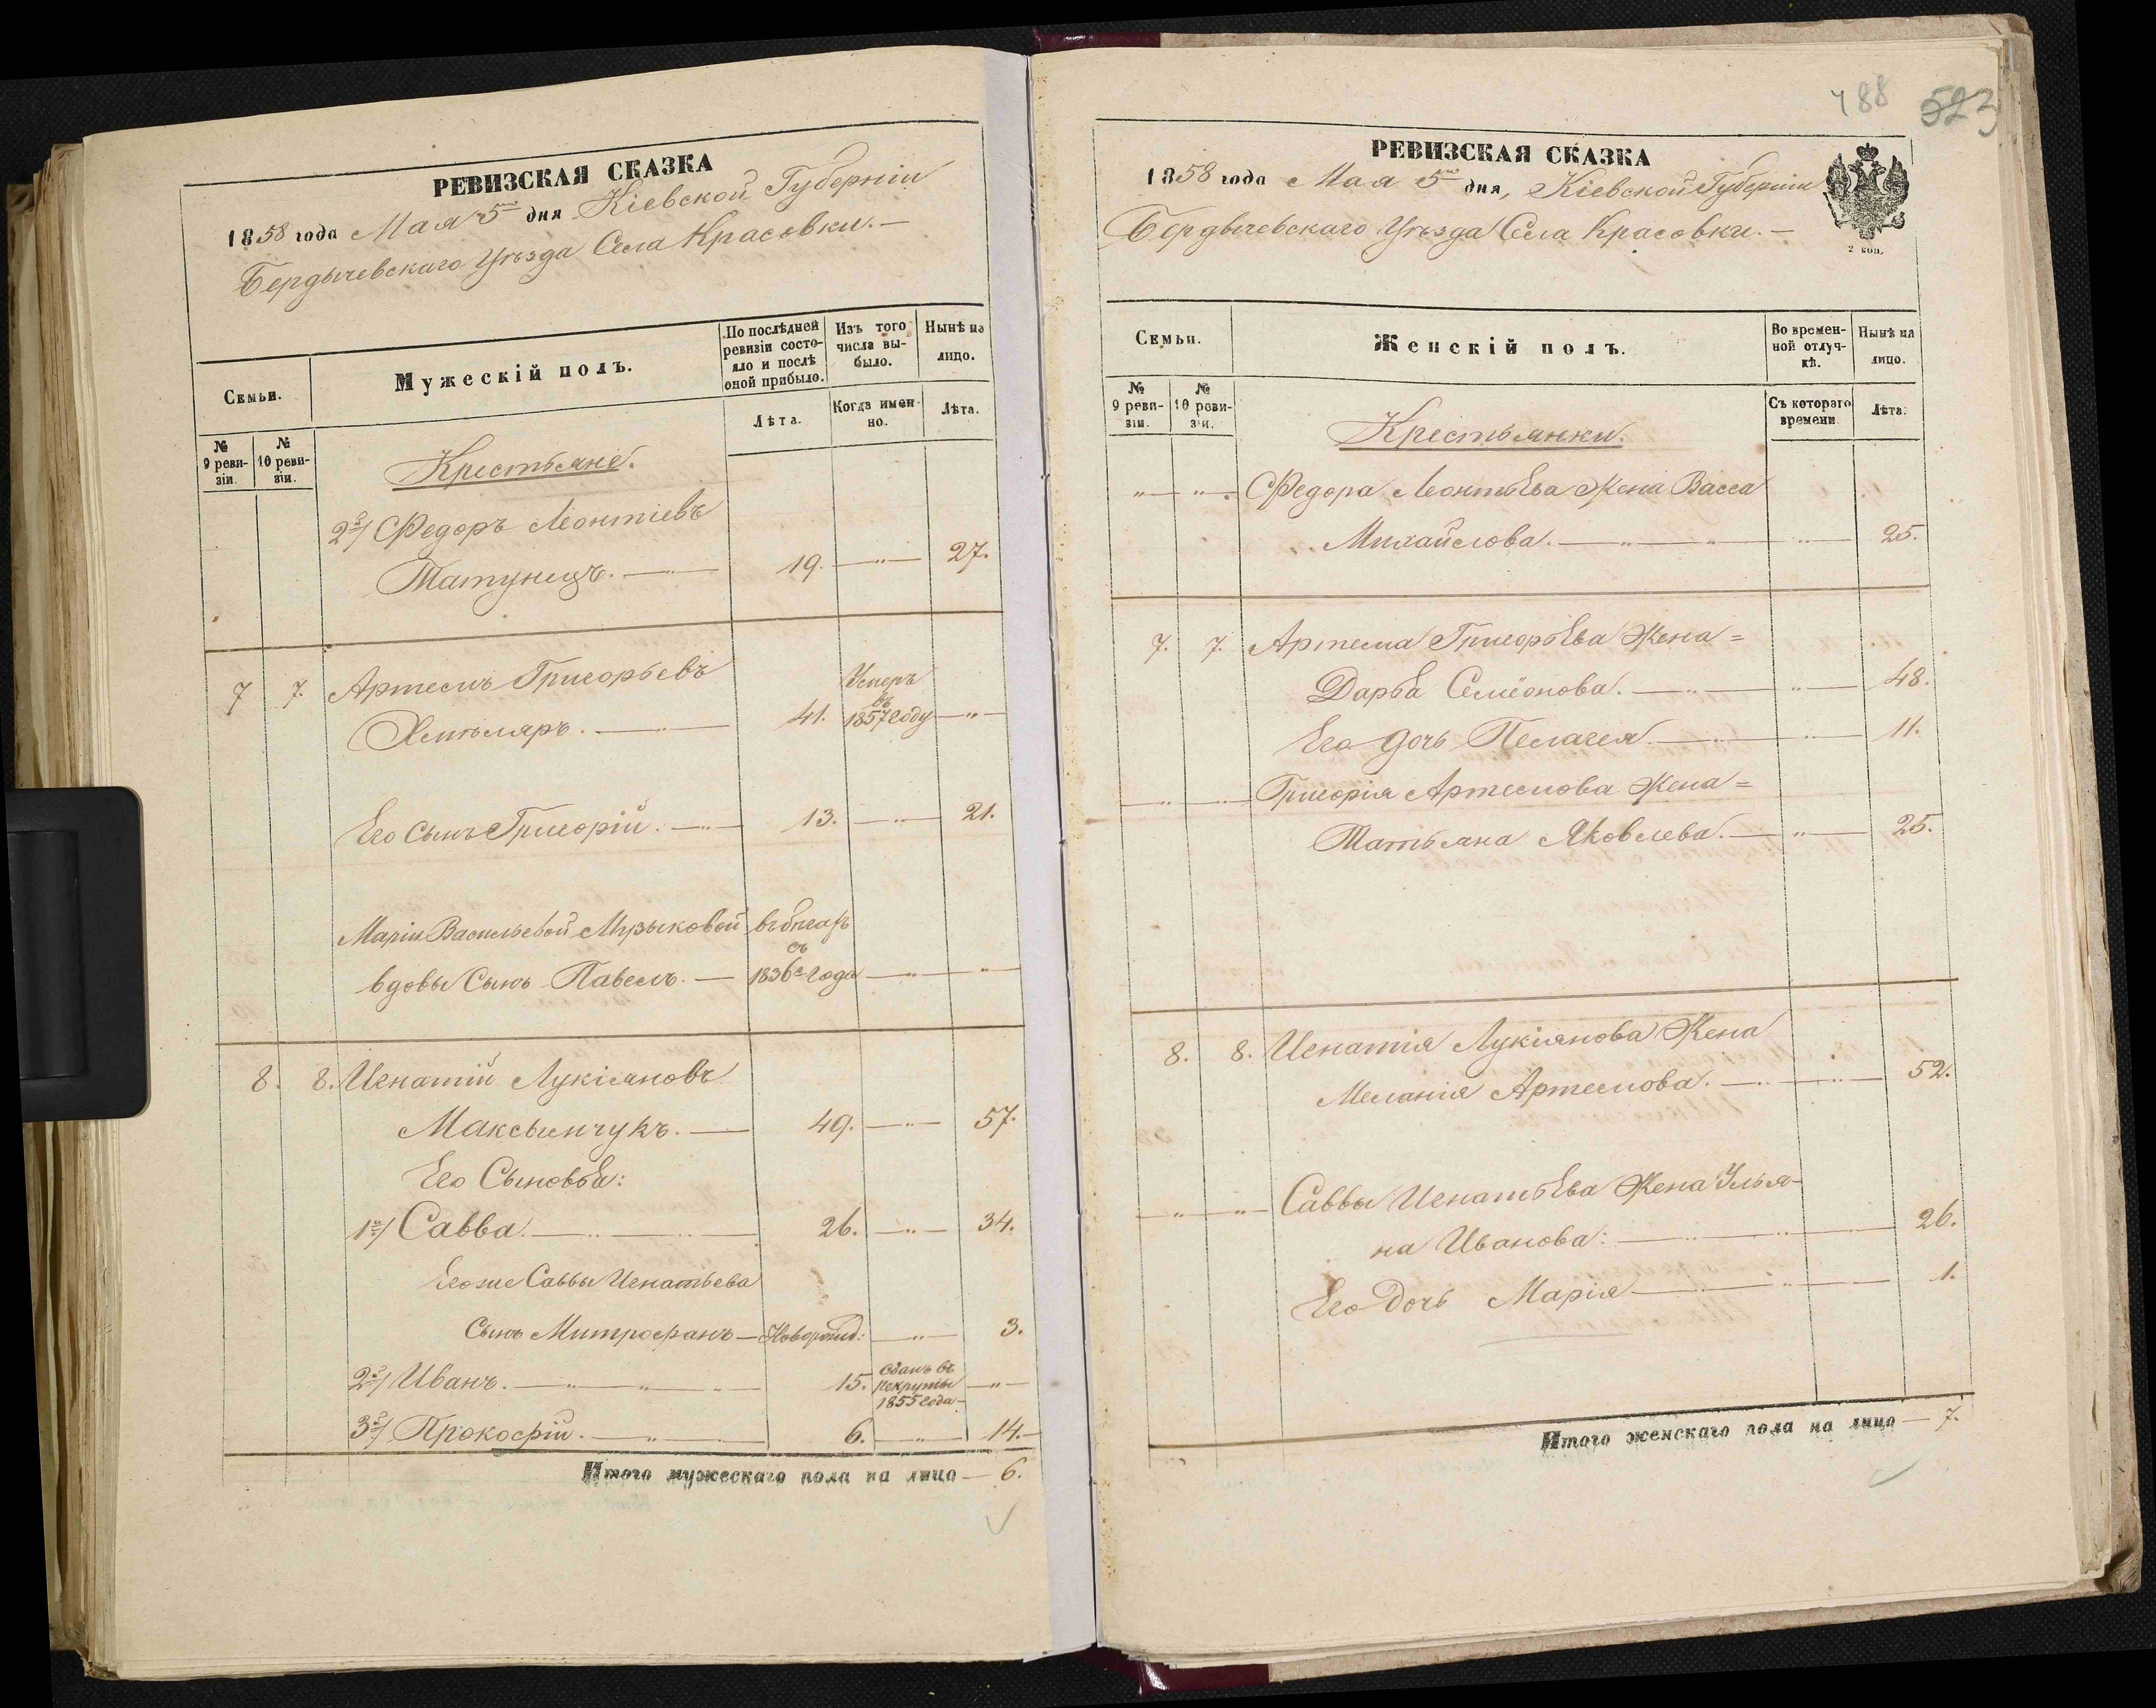 РЕВИЗСКАЯ СКАЗКА
1858 года Мая 5го дня Кіевской Губерніи
Бердычевскаго Уѣзда Села Красовки.
Семьи.
Мужескій полъ.
По послѣдней ревизіи состояло и послѣ оной прибыло.
Изъ того числа выбыло.
Нынѣ на лицо.
№ 9 ревизіи.
№ 10 ревизіи.
Лѣта.
Когда именно.
Лѣта.
Крестьяне.
2й/ Федоръ Леонтіевъ
Матунецъ. 19. — " — 27.
7 7. Артемъ Григорьевъ
41. Умеръ въ 1857 году — " —
Его сынъ Григорій. 13. — " — 21.
Маріи Васильевой Мрзыковой въ бѣгахъ
вдовы Сынъ Павелъ. — съ 1836го года — " — "
8. 8. Игнатій Лукіяновъ
Максымчукъ. — 49. — " — 57.
Его Сыновья:
1й/ Савва. 26. — " — 34.
Его же Саввы Игнатьева
Сынъ Митрофанъ — Новорожд: — " — 3.
2й/ Иванъ. 15. Сданъ въ рекруты 1855 года — " —
3й/ Прокофій. 6. — " — 14.
Итого мужескаго пола на лицо — 6.
488 523
РЕВИЗСКАЯ СКАЗКА
1858 года Мая 5го дня, Кіевской Губерніи
Бердычевскаго Уѣзда Села Красовки. —
2 коп.
Семьи.
Женскій полъ.
Во временной отлучкѣ.
Нынѣ на лицо.
№ 9 ревизіи.
№ 10 ревизіи.
Съ котораго времени
Лѣта.
Крестьянки.
" — " — Федора Леонтьева Жена Васса
Михайлова. — " — " — " — 25.
7. 7. Артема Григорьева Жена =
Дарья Семёонова. — " — " — 48.
Его дочь Пелагея — " — " — 11.
" — " — Григорія Артемова Жена =
Татьяна Яковлева. — " — 25.
8. 8. Игнатія Лукіянова Жена
Меланія Артемова. — " — " — 52.
" — " — Саввы Игнатьева Жена Улья-
на Иванова: — " — " — 26.
Его дочь Марія — " — 1.
Итого женскаго пола на лицо — 7.